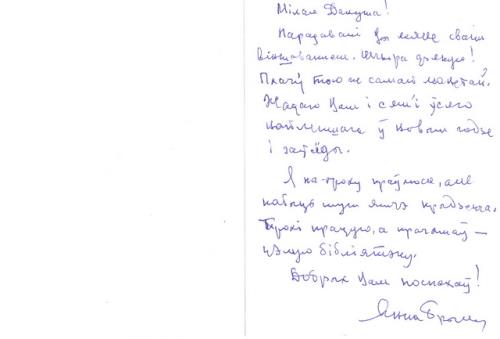 Мілая Данута!
Парадавалі Вы мяне сваім
віншаваннем. Шчыра дзякую!
Плачу тою ж самай манетай.
Жадаю Вам і сям'і ўсяго
найлепшага ў Новым годзе
і заўжды.
Я па-троху праўлюся, але
хадзіць яшчэ
Трохі працую, а прачытаў —
цэлую бібліятэку.
Добрых Вам поспехаў!
Янка